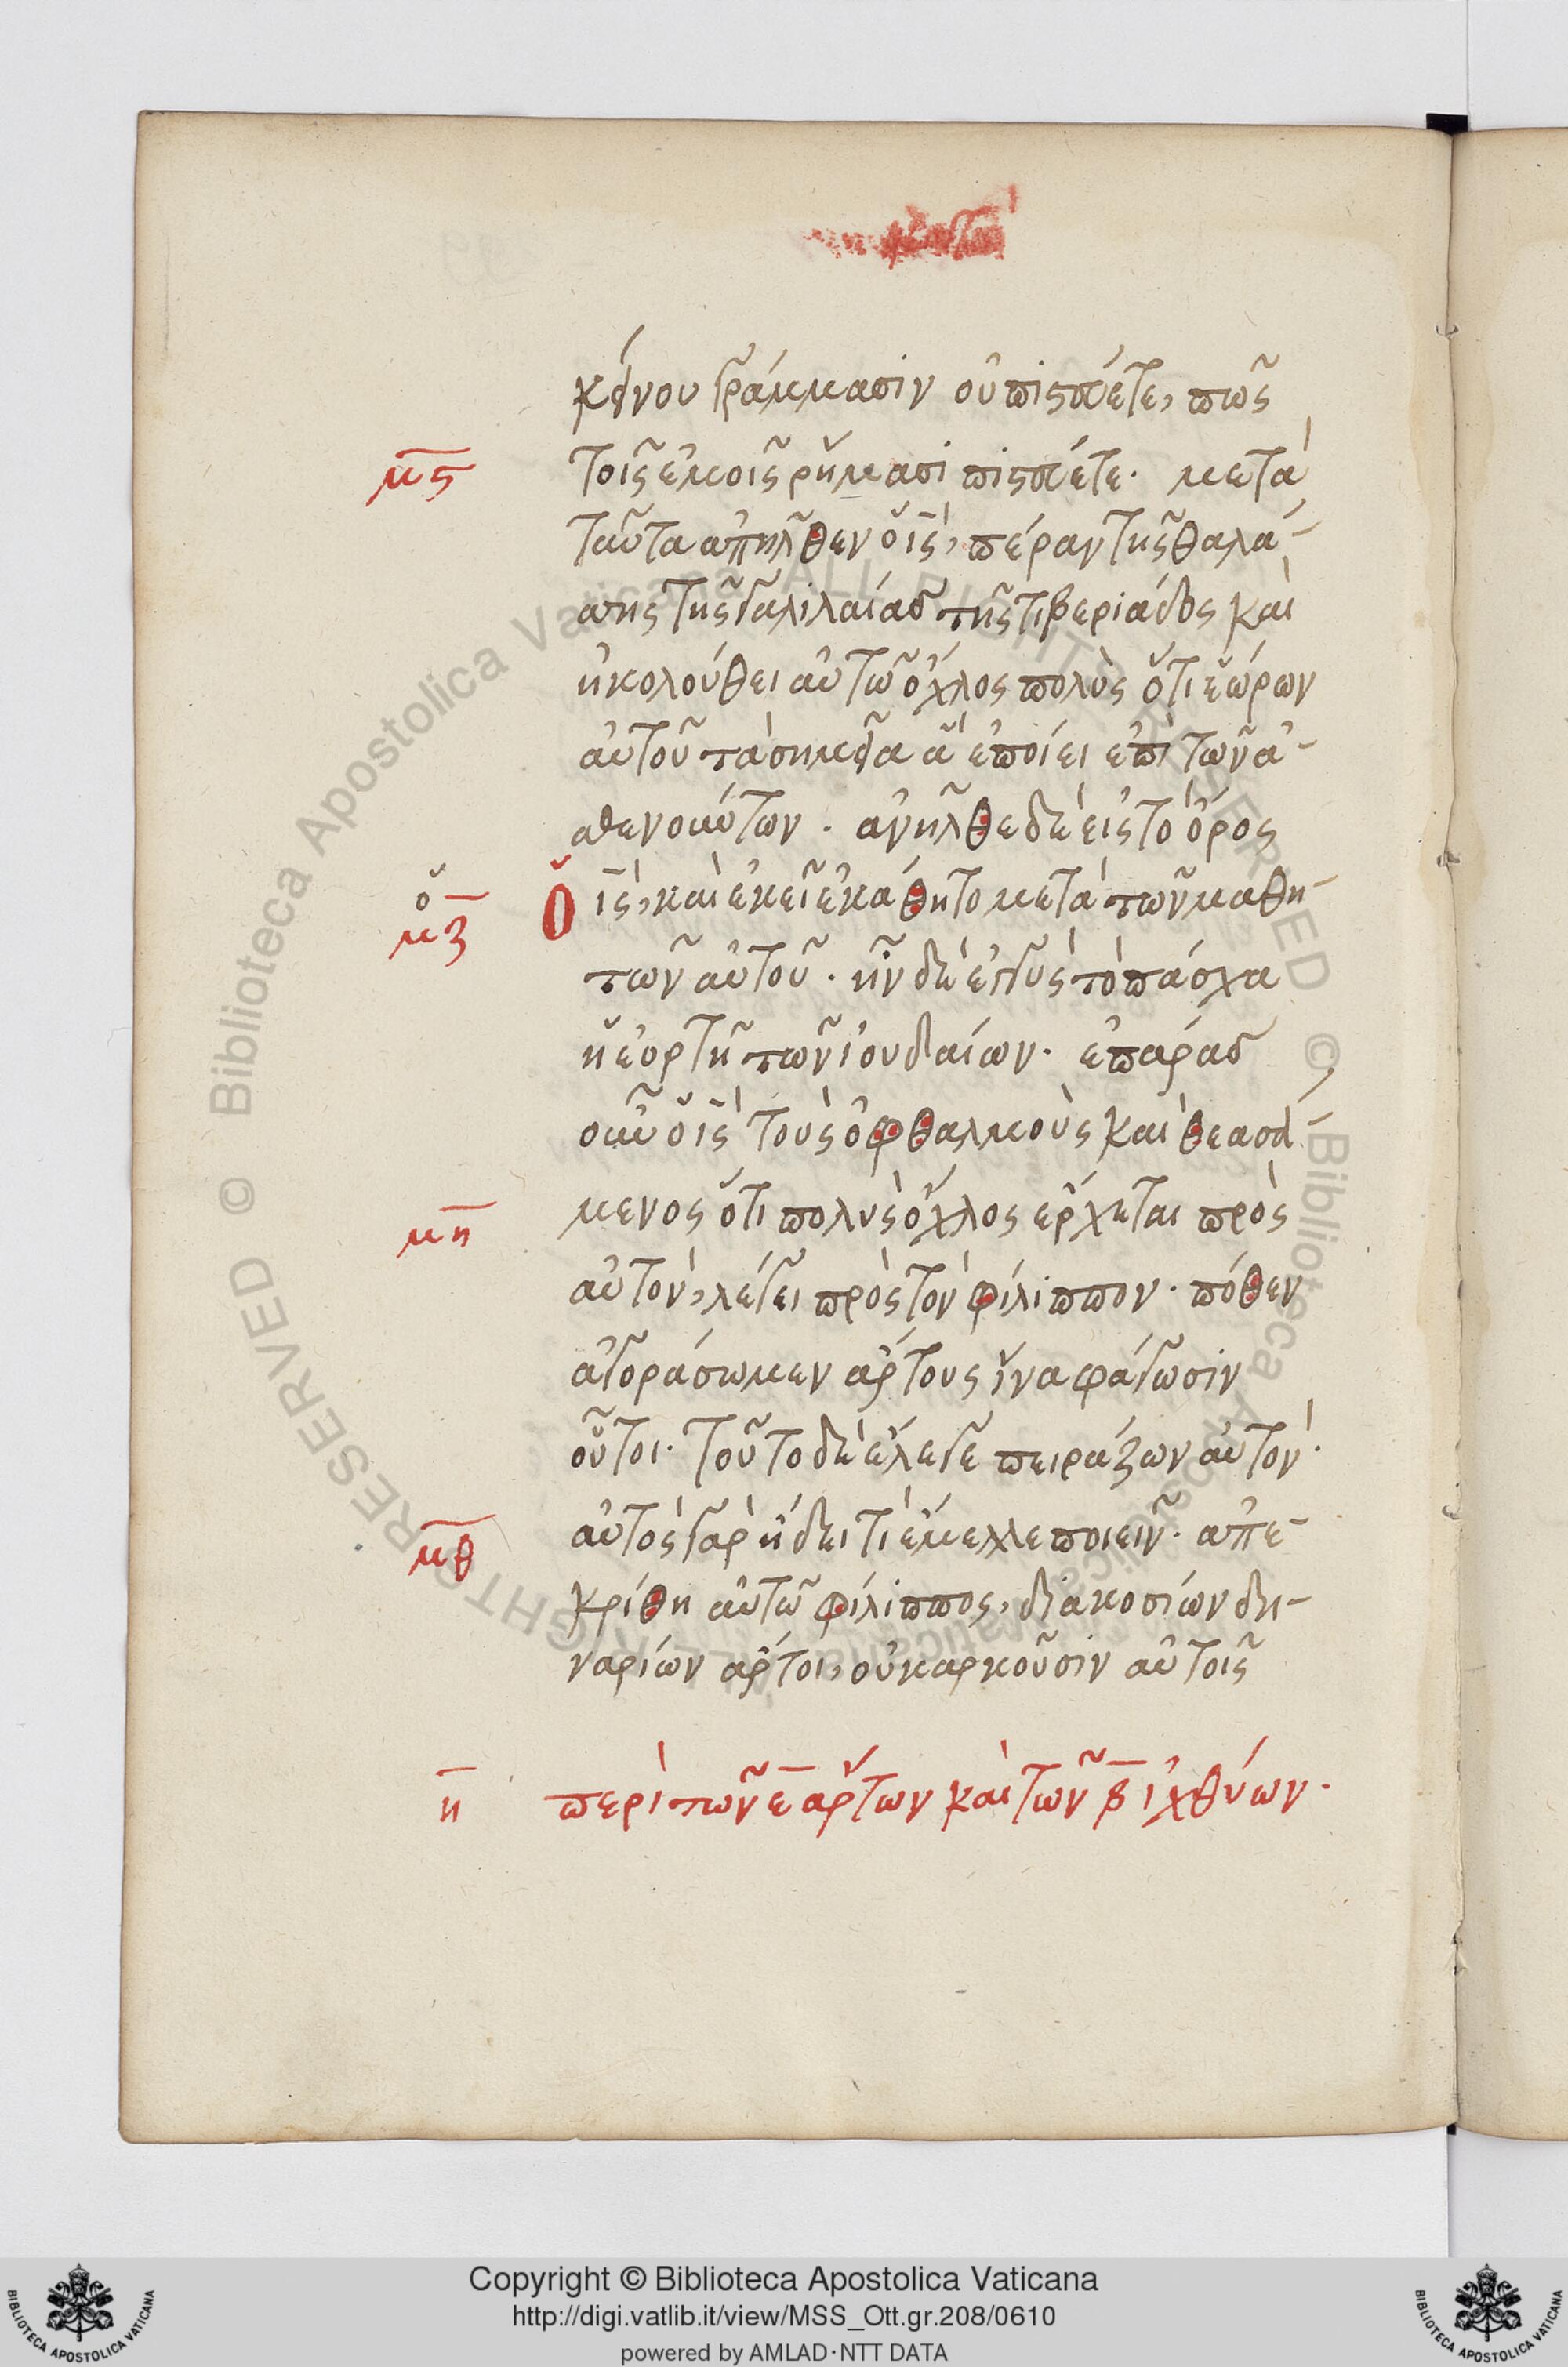 κείνου γράμμασιν οὐ πιστεύετε, πῶς
μϛ τοῖς ἐμοῖς ῥήμασι πιστεύετε· μετὰ
ταῦτα ἀπῆλθεν ὁ ἰς, πέραν τῆς θαλά-
σσης τῆς γαλιλαίας τῆς τιβεριάδος καὶ
ἠκολούθει αὐτῷ ὄχλος πολὺς ὅτι ἑώρων
αὐτοῦ τὰ σημεῖα ἃ ἐποίει ἐπὶ τῶν ἀ-
σθενούντων. ἀνῆλθε δὲ εἰς τὸ ὄρος
ὁ
μζ ὁ ἰς, καὶ ἐκεῖ ἐκάθητο μετὰ τῶν μαθη-
τῶν αὐτοῦ. ἦν δὲ ἐγγὺς τὸ πάσχα
ἡ ἑορτὴ τῶν ἰουδαίων. ἐπάρας
οὖν ὁ ἰς τοὺς ὀφθαλμοὺς καὶ θεασά-
μη μενος ὅτι πολὺς ὄχλος ἔρχεται πρὸς
αὐτὸν, λέγει πρὸς τὸν φίλιππον· πόθεν
ἀγοράσωμεν ἄρτους ἵνα φάγωσιν
οὗτοι· τοῦτο δὲ ἔλεγε πειράζων αὐτὸν·
μθ αὐτὸς γὰρ ἤδει τὶ ἔμελλε ποιεῖν. ἀπε-
κρίθη αὐτῷ φίλιππος, διακοσίων δη-
ναρίων ἄρτοι, οὐκ ἀρκοῦσιν αὐτοῖς
η περὶ τῶν ε ἄρτων καὶ τῶν β ἰχθύων.
© Biblioteca Apostolica Vaticana ALL RIGHTS RESERVED
© Biblioteca Apostolica Vaticana ALL RIGHTS RESERVED
Copyright © Biblioteca Apostolica Vaticana
http://digi.vatlib.it/view/MSS_Ott.gr.208/0610
powered by AMLAD·NTT DATA
BIBLIOTECA APOSTOLICA VATICANA
BIBLIOTECA APOSTOLICA VATICANA